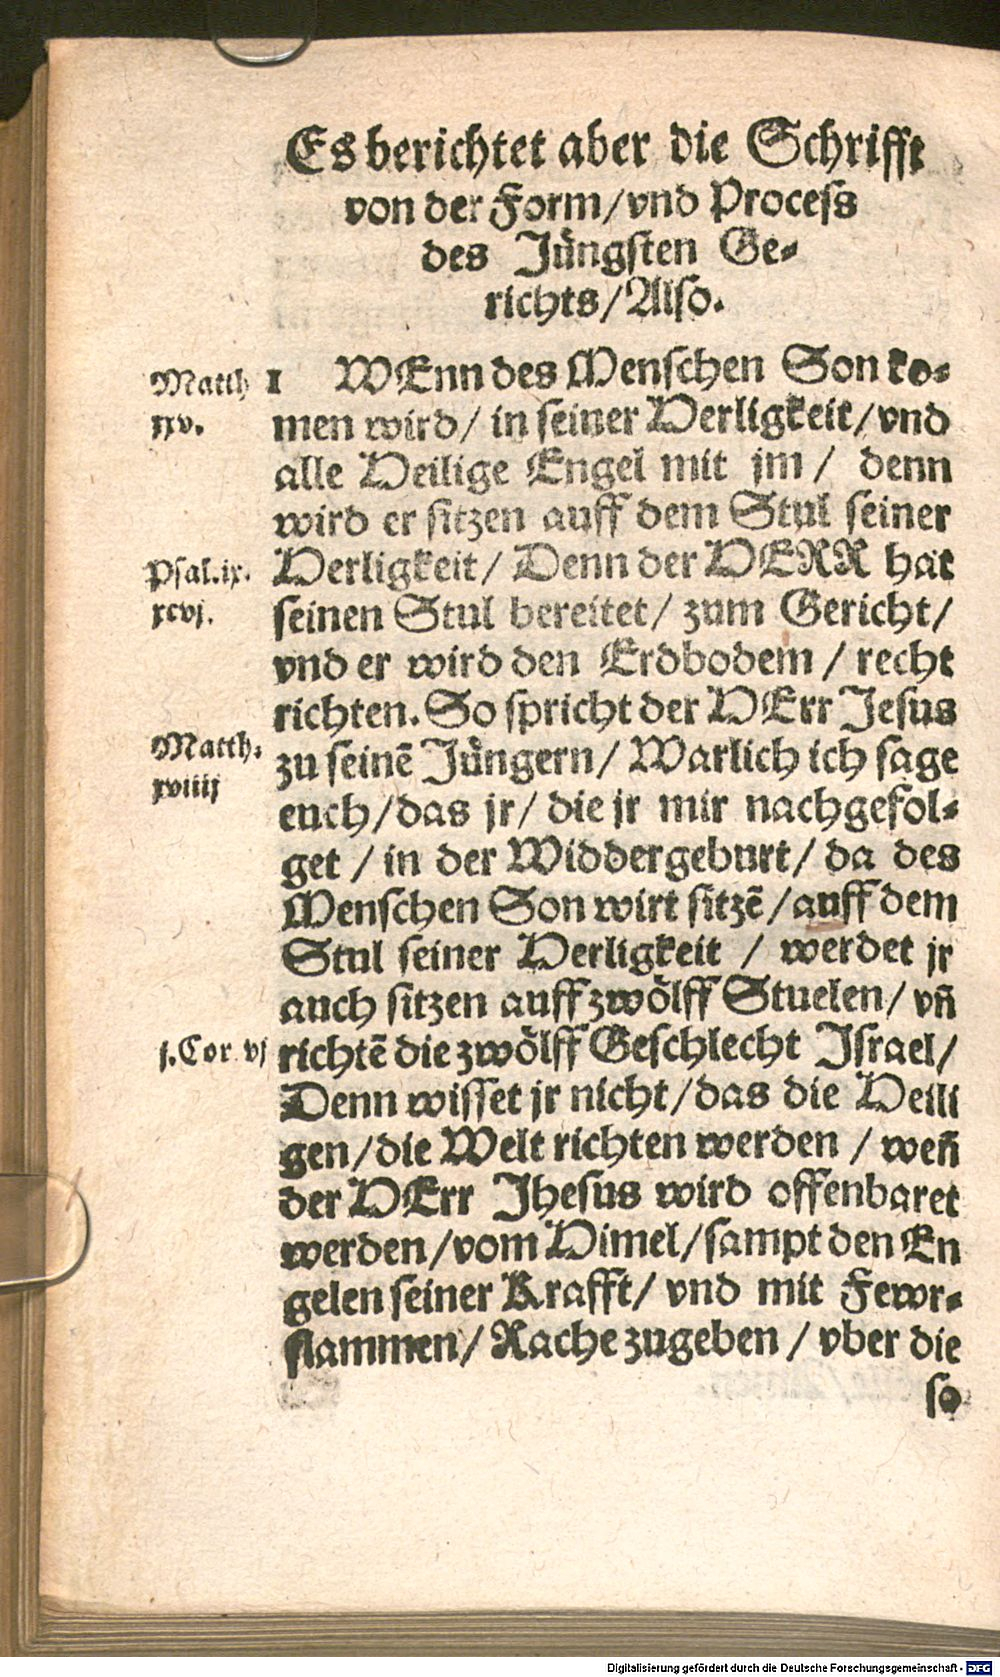 Es berichtet aber die Schrifft
von der Form/vnd Process
des Jüngsten Ge-
richts/Also.
Matth 1 WEnn des Menschen Son ko-
xxv. men wird/ in seiner Herligkeit/vnd
alle Heilige Engel mit jm / denn
wird er sitzen auff dem Stul seiner
Psal.ix. Herligkeit/ Denn der HERR hat
xcvj. seinen Stul bereitet/ zum Gericht/
vnd er wird den Erdbodem / recht
richten. So spricht der HErr Jesus
Matth. zu seinē Jüngern/ Warlich ich sage
xviiij euch/das jr/ die jr mir nachgefol-
get / in der Widdergeburt/ da des
Menschen Son wirt sitzē /auff dem
Stul seiner Herligkeit / werdet jr
auch sitzen auff zwölff Stuelen/ vñ
j.Cor vj richtē die zwölff Geschlecht Israel/
Denn wisset jr nicht/das die Heili
gen/die Welt richten werden / weñ
der HErr Jhesus wird offenbaret
werden/vom Himel/sampt den En
gelen seiner Krafft/ vnd mit Fewr-
flammen/ Rache zugeben / vber die
so
Digitalisierung gefördert durch die Deutsche Forschungsgemeinschaft - DFG